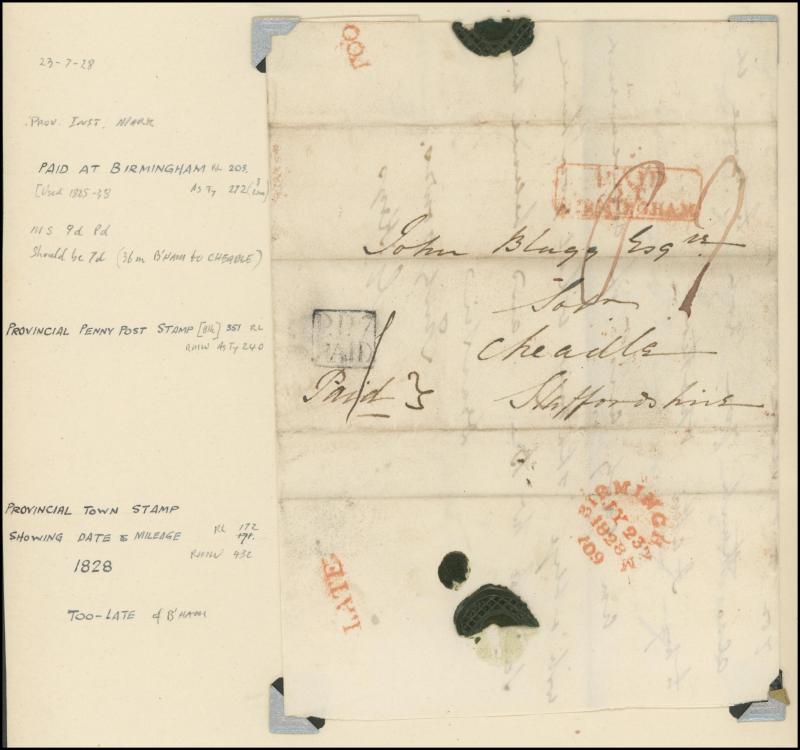 23-7-28
PROV. INST. MARK
PAID AT BIRMINGHAM RL 203.
[Used 1825-38
AsTy 272
MS 9d Pd
Should be 7d (36m B'HAM to CHEADLE)
PROVINCIAL PENNY POST STAMP 351 RL
RMW AsTy 240
PROVINCIAL TOWN STAMP
SHOWING DATE & MILEAGE
RL 172
RMW 432
1828
TOO-LATE of B'HAM
TOO
PAID
AT
BIRMINGHAM
John Blagg Esqre
Cheadle
Staffordshire
P.P.
PAID
Paid
BIRMINGH M
JY 23
1828
109
LATE